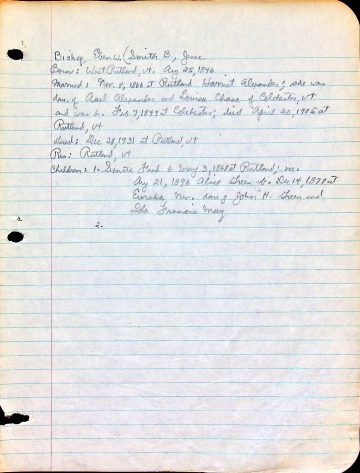 Bishop, Smith B., Jesse
Born: West Rutland, Vt. Aug 25, 1846
Married: Nov. 8, 1865 at Rutland Harriet Alexander; she was
dau. of Asel Alexander and Louisa Chase of Colchester, Vt
and was b. Feb 7, 1847 at Colchester; died April 20, 1905 at
Rutland, Vt
died: Dec 28, 1931 at Rutland Vt
Res: Rutland, Vt
Children: 1. Fred b. May 3, 1868 at Rutland; m.
Aug 21, 1896 Alice Green b. Dec 14, 1874 at
Eureka Nev. dau of John H. Green and
Ida Francis May
2.